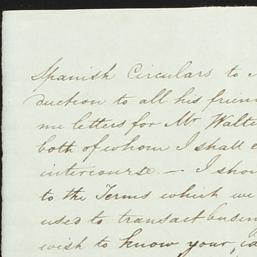 Spanish Circulars to
duction to all his frien
me letters for Mr Walte
both of whom I shall
intercourse. — I shou
to the Terms which we
used to transact busin
wish to know your, ca